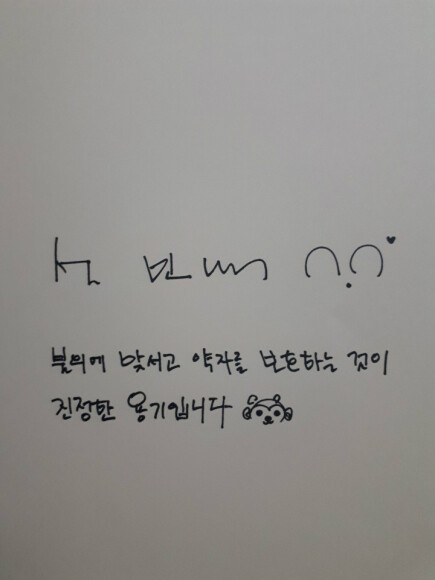 불의에 맞서고 약자를 보호하는 것이
진정한 용기입니다